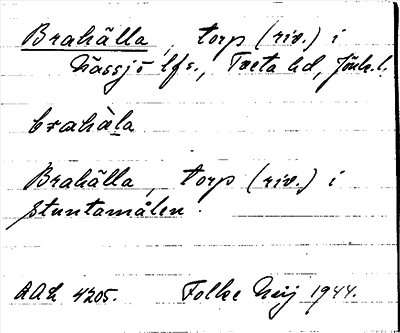 Brahälla, torp (riv.) i
Nässjö lfs., Tveta hd, Jönk. l.
brahàla
Brahälla, torp (riv.) i
Stuntamålen.
AAL 4205. Folke Heij 1944.